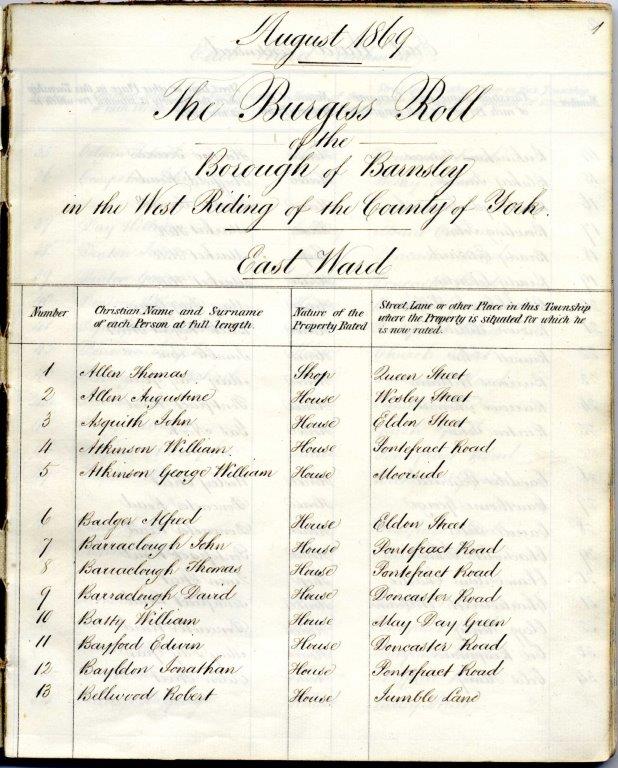 1
August 1869
The Burgess Roll
of the
Borough of Barnsley
in the West Riding of the County of York.
East Ward
Number Christian Name and Surname of each Person at Full length. Nature of the Property Rated Street, Lane or other Place in this Township where the Property is situated for which he is now rated.
1 Allen Thomas Shop Queen Street
2 Allen Augustine House Wesley Street
3 Asquith John House Eldon Street
4 Atkinson William House Pontefract Road
5 Atkinson George William House Moorside
6 Badger Alfred House Eldon Street
7 Barraclough John House Pontefract Road
8 Barraclough Thomas House Pontefract Road
9 Barraclough David House Doncaster Road
10 Batty William House May Day Green
11 Bayford Edwin House Doncaster Road
12 Bayldon Jonathan House Pontefract Road
13 Bellwood Robert House Jumble Lane